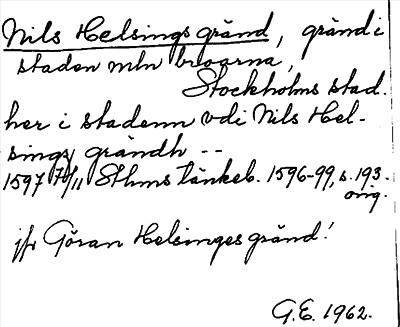 Nils Helsings gränd, gränd i
staden mln broarna,
Stockholms stad.
her i stadenn vdi Nils Hel-
sings grändh --
1597 /11 Sthms tänkeb. 1596-99, s. 193.
orig.
jfr Göran Helsinges gränd!
G.E. 1962.